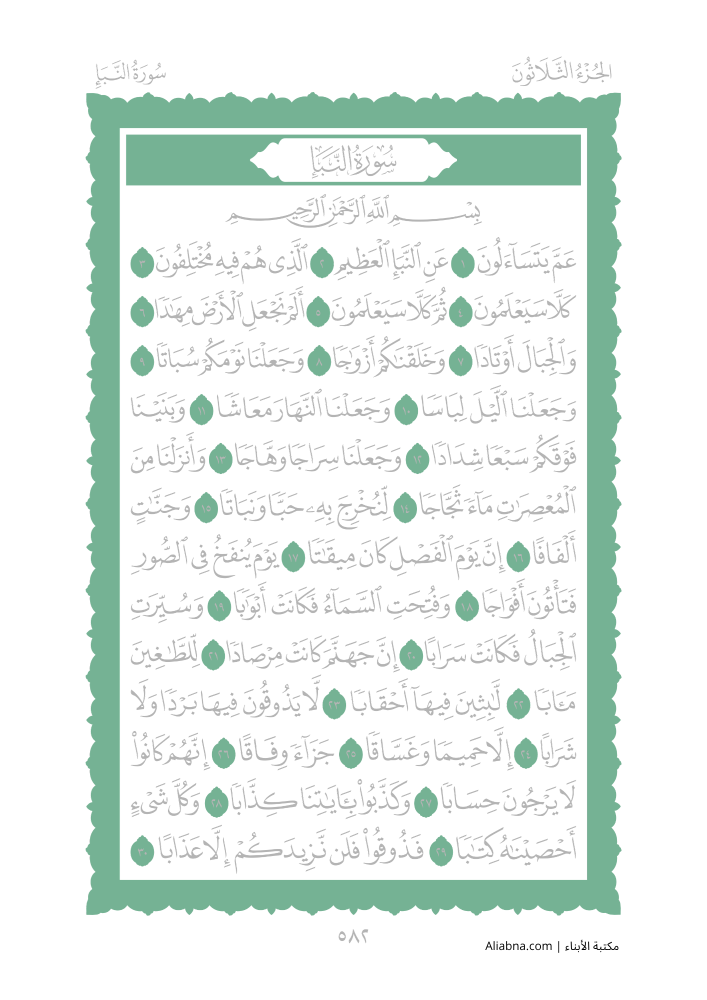 الجُزْءُ الثَّلَاثُونَ
سُورَةُ النَّبَإِ
سُورَةُ النَّبَإِ
بِسْمِ ٱللَّهِ ٱلرَّحْمَٰنِ ٱلرَّحِيمِ
عَمَّ يَتَسَآءَلُونَ ١ عَنِ ٱلنَّبَإِ ٱلْعَظِيمِ ٢ ٱلَّذِى هُمْ فِيهِ مُخْتَلِفُونَ ٣
كَلَّا سَيَعْلَمُونَ ٤ ثُمَّ كَلَّا سَيَعْلَمُونَ ٥ أَلَمْ نَجْعَلِ ٱلْأَرْضَ مِهَٰدًا ٦
وَٱلْجِبَالَ أَوْتَادًا ٧ وَخَلَقْنَٰكُمْ أَزْوَٰجًا ٨ وَجَعَلْنَا نَوْمَكُمْ سُبَاتًا ٩
وَجَعَلْنَا ٱلَّيْلَ لِبَاسًا ١٠ وَجَعَلْنَا ٱلنَّهَارَ مَعَاشًا ١١ وَبَنَيْنَا
فَوْقَكُمْ سَبْعًا شِدَادًا ١٢ وَجَعَلْنَا سِرَاجًا وَهَّاجًا ١٣ وَأَنزَلْنَا مِنَ
ٱلْمُعْصِرَٰتِ مَآءً ثَجَّاجًا ١٤ لِّنُخْرِجَ بِهِۦ حَبًّا وَنَبَاتًا ١٥ وَجَنَّٰتٍ
أَلْفَافًا ١٦ إِنَّ يَوْمَ ٱلْفَصْلِ كَانَ مِيقَٰتًا ١٧ يَوْمَ يُنفَخُ فِى ٱلصُّورِ
فَتَأْتُونَ أَفْوَاجًا ١٨ وَفُتِحَتِ ٱلسَّمَآءُ فَكَانَتْ أَبْوَٰبًا ١٩ وَسُيِّرَتِ
ٱلْجِبَالُ فَكَانَتْ سَرَابًا ٢٠ إِنَّ جَهَنَّمَ كَانَتْ مِرْصَادًا ٢١ لِّلطَّٰغِينَ
مَـَٔابًا ٢٢ لَّٰبِثِينَ فِيهَآ أَحْقَابًا ٢٣ لَّا يَذُوقُونَ فِيهَا بَرْدًا وَلَا
شَرَابًا ٢٤ إِلَّا حَمِيمًا وَغَسَّاقًا ٢٥ جَزَآءً وِفَاقًا ٢٦ إِنَّهُمْ كَانُوا۟
لَا يَرْجُونَ حِسَابًا ٢٧ وَكَذَّبُوا۟ بِـَٔايَٰتِنَا كِذَّابًا ٢٨ وَكُلَّ شَىْءٍ
أَحْصَيْنَٰهُ كِتَٰبًا ٢٩ فَذُوقُوا۟ فَلَن نَّزِيدَكُمْ إِلَّا عَذَابًا ٣٠
٥٨٢
مكتبة الأبناء | Aliabna.com